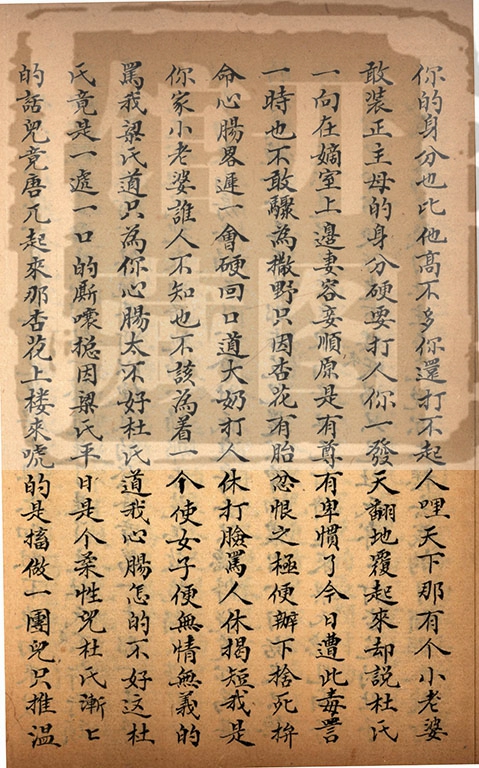 你的身分也比他高不多你還打不起人哩天下那有个小老婆
敢装正主母的身分硬要打人你一發天翻地覆起來却説杜氏
一向在嫡室上邊妻容妾順原是有尊有卑慣了今日遭此毒詈
一時也不敢驟為撒野只因杏花有胎忿恨之極便辦下捨死拚
命心腸畧遲一會硬回口道大奶打人休打臉罵人休揭短我是
你家小老婆誰人不知也不該為着一个使女子便無情無義的
罵我梁氏道只為你心腸太不好杜氏道我心腸怎的不好这杜
氏竟是一遞一口的厮嚷搃因梁氏平日是个柔性兒杜氏漸〻
的話兒竟唐兀起來那杏花上楼來唬的是搐做一團兒只推温